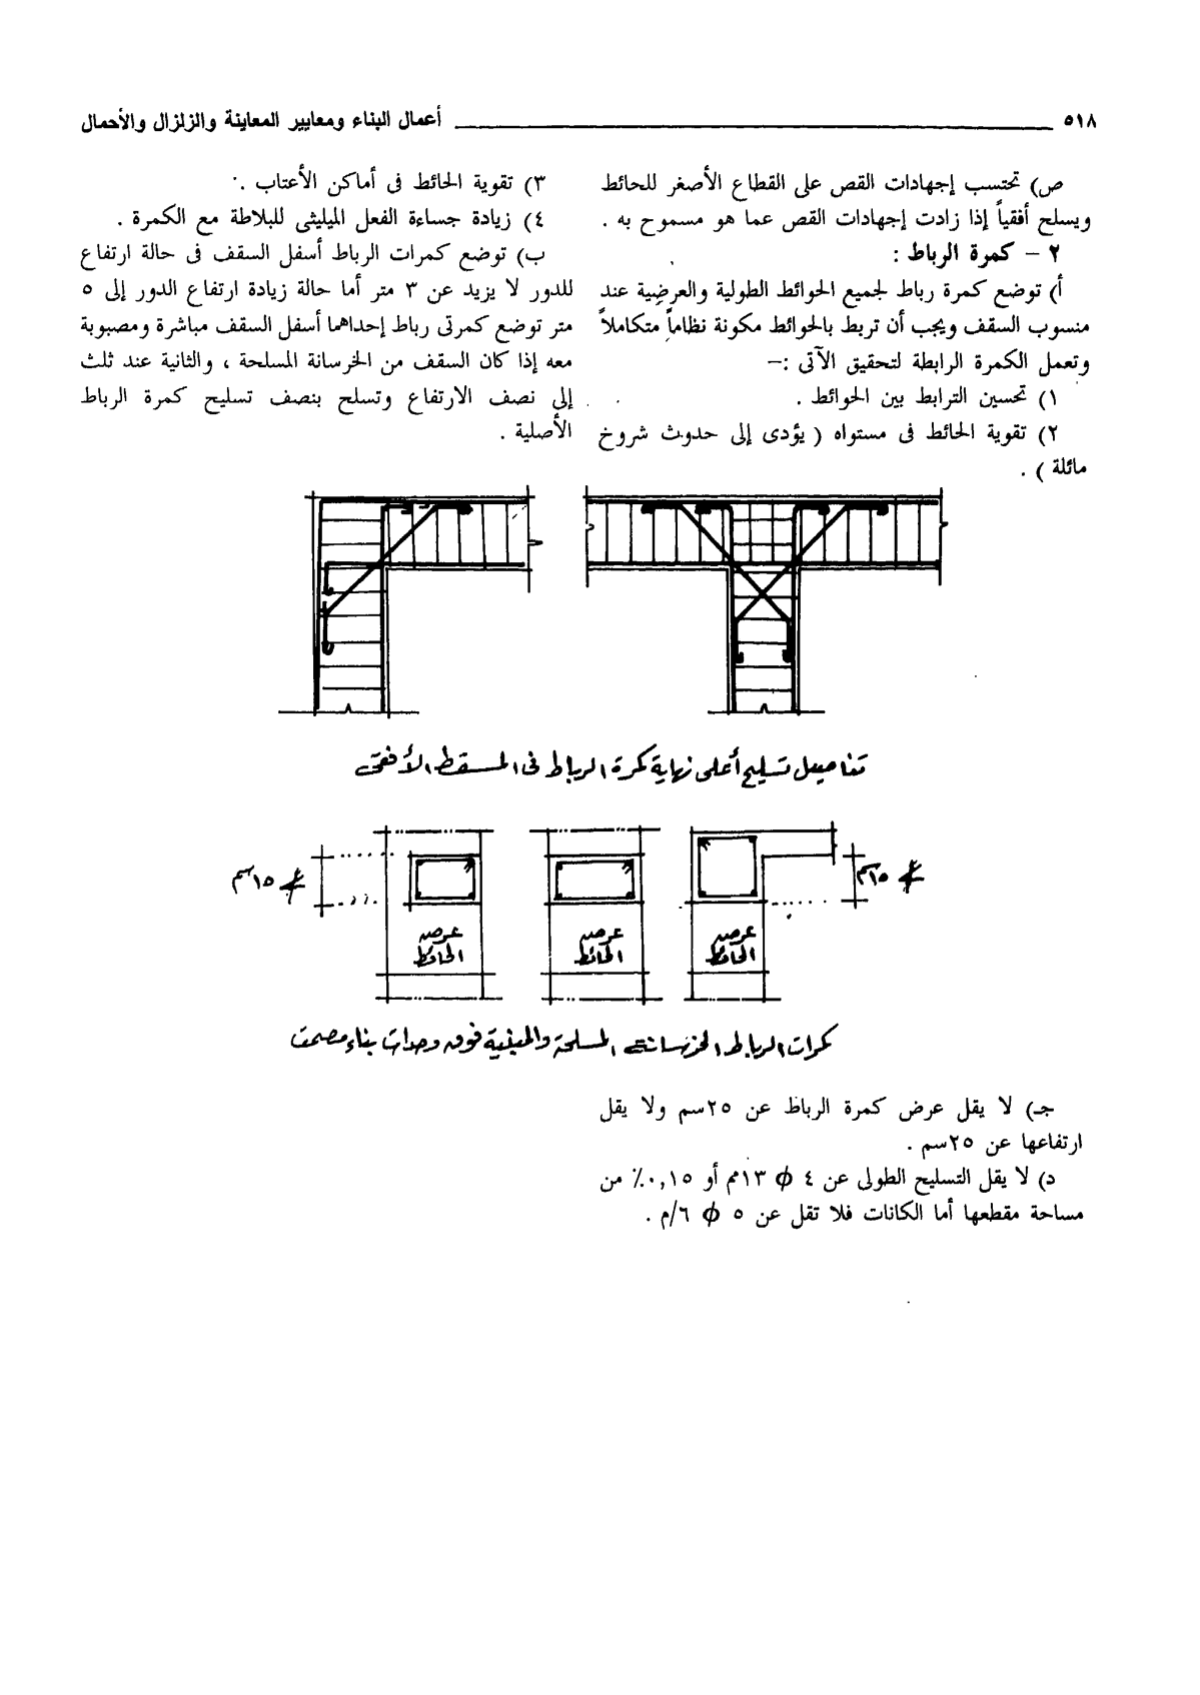 ٥١٨ أعمال البناء ومعايير المعاينة والزلزال والأحمال
ص) تحتسب إجهادات القص على القطاع الأصغر للحائط
ويسلح أفقياً إذا زادت إجهادات القص عما هو مسموح به .
٢ – كمرة الرباط :
أ) توضع كمرة رباط لجميع الحوائط الطولية والعرضية عند
منسوب السقف ويجب أن تربط بالحوائط مكونة نظاماً متكاملاً
وتعمل الكمرة الرابطة لتحقيق الآتى :–
١) تحسين الترابط بين الحوائط .
٢) تقوية الحائط فى مستواه ( يؤدى إلى حدوث شروخ
مائلة ) .
٣) تقوية الحائط فى أماكن الأعتاب .
٤) زيادة جساءة الفعل الميليثى للبلاطة مع الكمرة .
ب) توضع كمرات الرباط أسفل السقف فى حالة ارتفاع
للدور لا يزيد عن ٣ متر أما حالة زيادة ارتفاع الدور إلى ٥
متر توضع كمرتى رباط إحداهما أسفل السقف مباشرة ومصبوبة
معه إذا كان السقف من الخرسانة المسلحة ، والثانية عند ثلث
إلى نصف الارتفاع وتسلح بنصف تسليح كمرة الرباط
الأصلية .
تفاصيل تسليح أعلى نهاية كمرة الرباط فى المسقط الأفقى
١٥سم
عرض
الحائط
عرض
الحائط
عرض
الحائط
١٥سم
كمرات الرباط الخرسانية المسلحة والمبنية فوق وحدات بناء مصمت
جـ) لا يقل عرض كمرة الرباظ عن ٢٥سم ولا يقل
ارتفاعها عن ٢٥سم .
د) لا يقل التسليح الطولى عن ٤ ϕ ١٣مم أو ٠,١٥٪ من
مساحة مقطعها أما الكانات فلا تقل عن ٥ ϕ ٦/م .